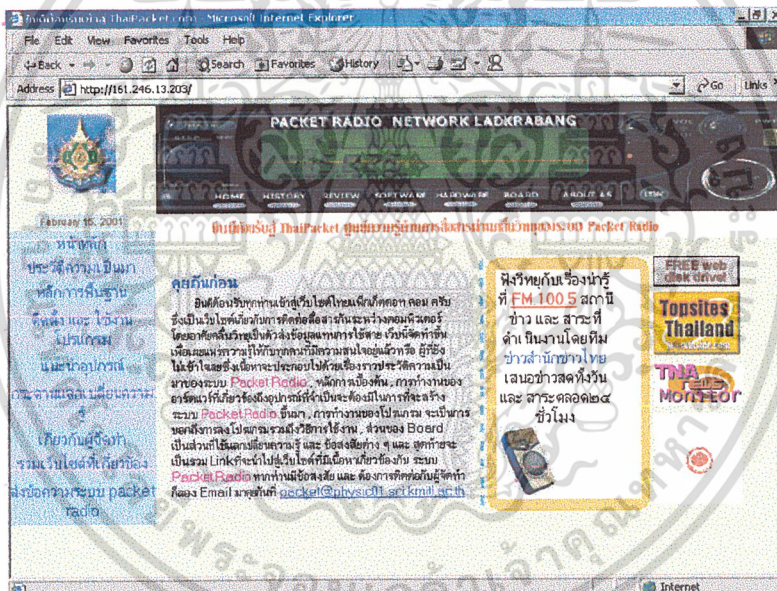 ยินดีต้อนรับเข้าสู่ ThaiPacket.com - Microsoft Internet Explorer
File Edit View Favorites Tools Help
Back Search Favorites History
Address http://161.246.13.203/ Go Links
PACKET RADIO NETWORK LADKRABANG
HOME HISTORY REVIEW SOFTWARE HARDWARE BOARD ABOUT AS LINK
ยินดีต้อนรับสู่ ThaiPacket ศูนย์ความรู้ด้านการสื่อสารผ่านคลื่นวิทยุระบบ Packet Radio
February 16, 2001
หน้าหลัก
ประวัติความเป็นมา
หลักการพื้นฐาน
ติดตั้ง และ ใช้งาน
โปรแกรม
แนะนำอุปกรณ์
กระดานแลกเปลี่ยนความ
รู้
เกี่ยวกับผู้จัดทำ
รวมเว็บไซต์ที่เกี่ยวข้อง
ส่งข้อความระบบ packet
radio
คุยกันก่อน
ยินดีต้อนรับทุกท่านเข้าสู่เว็บไซต์ไทยแพ็กเก็ตดอท คอม ครับ
ซึ่งเป็นเว็บไซต์เกี่ยวกับการติดต่อสื่อสารกันระหว่างคอมพิวเตอร์
โดยอาศัยคลื่นวิทยุเป็นตัวส่งข้อมูลแทนการใช้สาย เว็บนี้จัดทำขึ้น
เพื่อเผยแพร่ความรู้ให้กับทุกคนที่มีความสนใจอยู่แล้วหรือ ผู้ที่ยัง
ไม่เข้าใจเลยซึ่งเนื้อหาจะประกอบไปด้วยเรื่องราวประวัติความเป็น
มาของระบบ Packet Radio , หลักการเบื้องต้น , การทำงานของ
ฮาร์ดแวร์ที่เกี่ยวข้องถึงอุปกรณ์ที่จำเป็นจะต้องมีในการที่จะสร้าง
ระบบ Packet Radio ขึ้นมา , การทำงานของโปรแกรม จะเป็นการ
บอกถึงการลงโปรแกรมรวมถึงวิธีการใช้งาน , ส่วนของ Board
เป็นส่วนที่ใช้แลกเปลี่ยนความรู้ และ ข้อสงสัยต่าง ๆ และ สุดท้ายจะ
เป็นรวม Link ที่จะนำไปสู่เว็บไซต์ที่มีเนื้อหาเกี่ยวข้องกับ ระบบ
Packet Radio หากท่านมีข้อสงสัย และ ต้องการติดต่อกับผู้จัดทำ
ก็ลอง Email มาคุยกันที่ packet@physic01.sci.kmitl.ac.th
ฟังวิทยุกับเรื่องน่ารู้
ที่ FM 100.5 สถานี
ข่าว และ สาระที่
ดำเนินงานโดยทีม
ข่าวสำนักข่าวไทย
เสนอข่าวสดทั้งวัน
และ สาระตลอด๒๔
ชั่วโมง
FREE web
disk drive!
Topsites
Thailand
TNA
NEWS
MONITOR
Internet